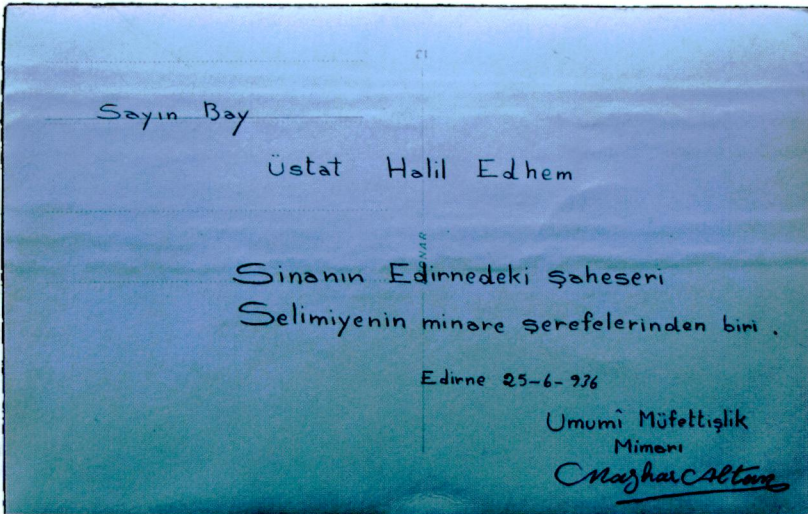 21
Sayın Bay
Üstat Halil Edhem
Sinanın Edirnedeki şaheseri
Selimiyenin minare şerefelerinden biri .
Edirne 25-6-936
Umumî Müfettişlik
Mimarı
Mazhar Altan